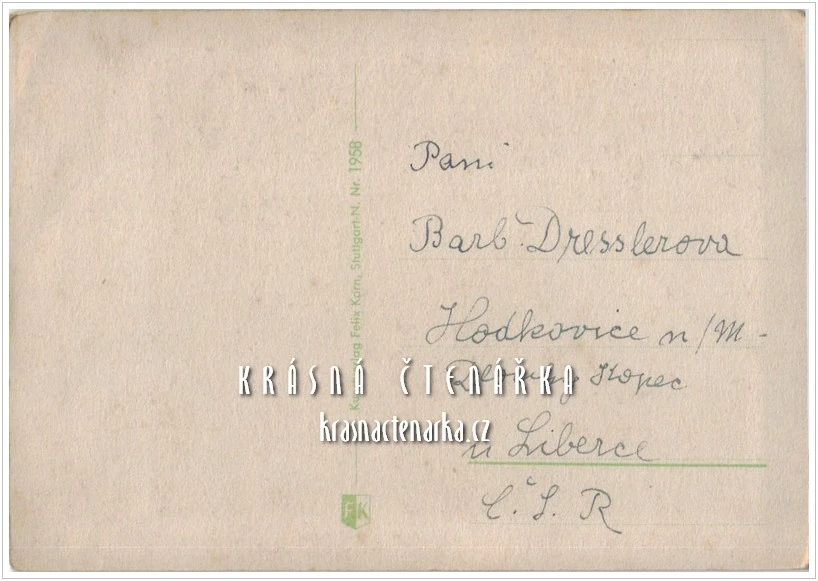 Paní
Barb. Dresslerova
Hodkovice n/M-
Kopec
u Liberce
Č. S. R
Felix Korn, Stuttgart-N. Nr. 1958
FK
KRÁSNÁ ČTENÁŘKA
krasnactenarka.cz